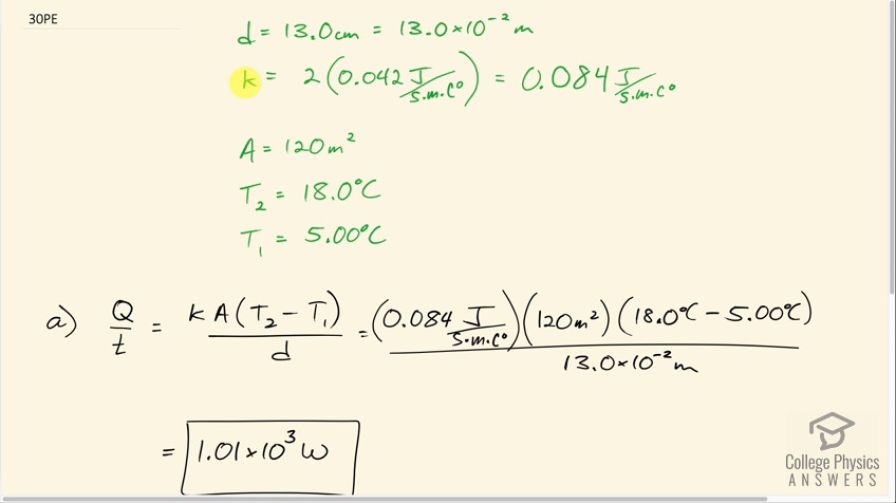 30PE
d = 13.0cm = 13.0×10⁻² m
k = 2(0.042 J/s·m·C°) = 0.084 J/s·m·C°
A = 120m²
T₂ = 18.0°C
T₁ = 5.00°C
a) Q/t = kA(T₂ − T₁)/d = (0.084 J/s·m·C°)(120m²)(18.0°C − 5.00°C)/13.0×10⁻² m
= 1.01×10³ W
College Physics
ANSWERS